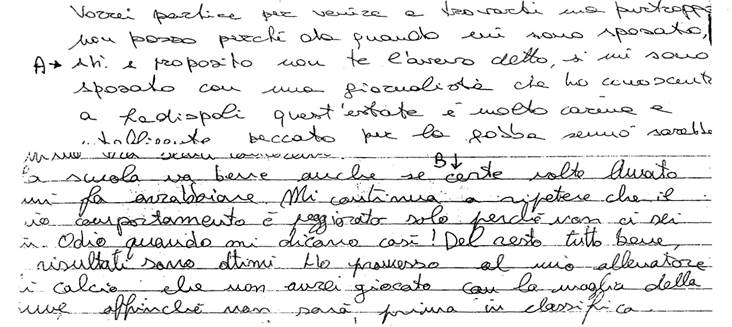 Vorrei partire per venire a trovarti ma purtroppo
non posso perché da quando mi sono sposato,
A→ ah! a proposito non te l'avevo detto, si mi sono
sposato con una giornalista che ho conosciuta
a Ladispoli quest'estate è molto carina e
intelligente peccato per la gobba sennò sarebbe
B↓
la scuola va bene anche se certe volte Amato
mi fa arrabbiare. Mi continua a ripetere che il
mio comportamento è peggiorato solo perché non ci sei
. Odio quando mi dicono così! Del resto tutto bene,
i risultati sono ottimi. Ho promesso al mio allenatore
di calcio che non avrei giocato con la maglia della
affinché non sarà, prima in classifica.